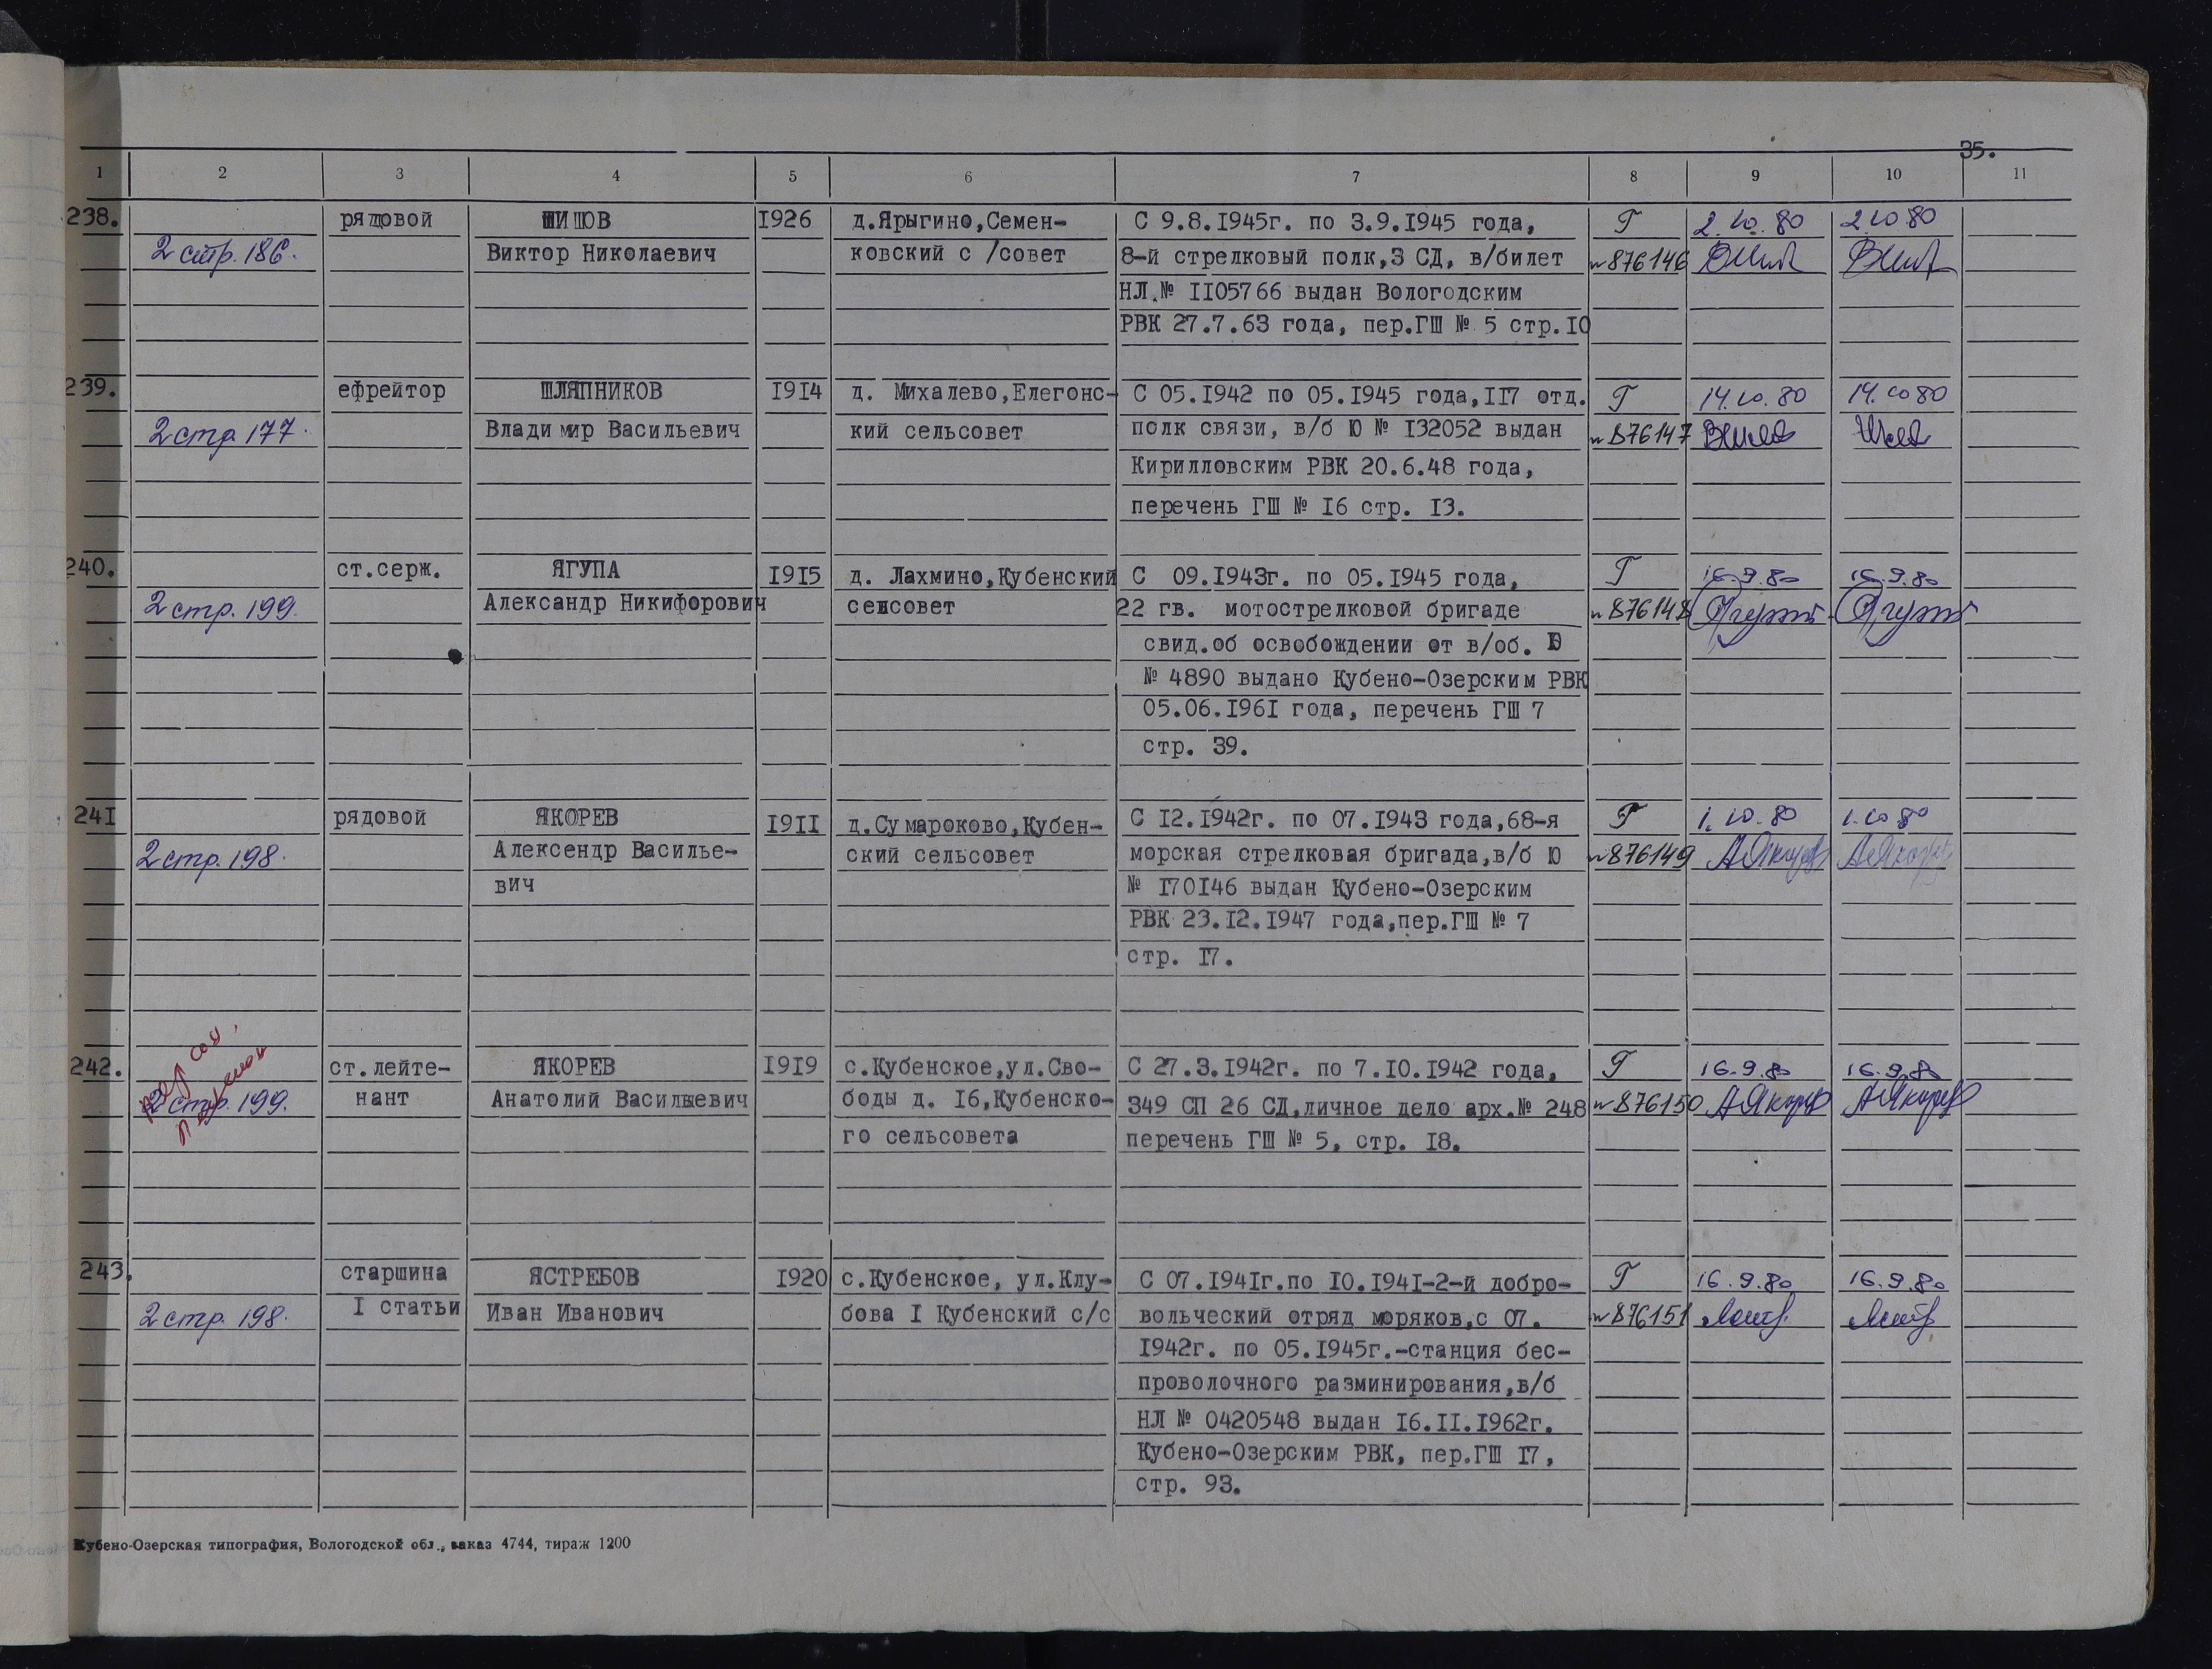 35.
1 2 3 4 5 6 7 8 9 10 11
238. рядовой ШИШОВ 1926 д.Ярыгино,Семен- С 9.8.1945г. по 3.9.1945 года, Г 2.10.80 2.10 80
2 стр. 186. Виктор Николаевич ковский с /совет 8-й стрелковый полк,3 СД, в/билет №876146
НЛ.№ 1105766 выдан Вологодским
РВК 27.7.63 года, пер.ГШ № 5 стр.10
239. ефрейтор ШЛЯПНИКОВ 1914 д. Михалево,Елегонс- С 05.1942 по 05.1945 года,117 отд. Г 14.10.80 14.10 80
2 стр 177. Владимир Васильевич кий сельсовет полк связи, в/б Ю № 132052 выдан №876147
Кирилловским РВК 20.6.48 года,
перечень ГШ № 16 стр. 13.
240. ст.серж. ЯГУПА 1915 д. Лахмино,Кубенский С 09.1943г. по 05.1945 года, Г 16.9.80 16.9.80
2 стр. 199. Александр Никифорович сенсовет 22 гв. мотострелковой бригаде №876148
свид.об освобождении от в/об. Ю
№ 4890 выдано Кубено-Озерским РВК
05.06.1961 года, перечень ГШ 7
стр. 39.
241 рядовой ЯКОРЕВ 1911 д.Сумароково,Кубен- С 12.1942г. по 07.1943 года,68-я Г 1.10.80 1.10 80
2 стр. 198. Алексендр Василье- ский сельсовет морская стрелковая бригада,в/б Ю №876149 АЯкорев АЯкорев
вич № 170146 выдан Кубено-Озерским
РВК 23.12.1947 года,пер.ГШ № 7
стр. 17.
242. ст.лейте- ЯКОРЕВ 1919 с.Кубенское,ул.Сво- С 27.3.1942г. по 7.10.1942 года, Г 16.9.80 16.9.80
2 стр. 199. нант Анатолий Васильевич боды д. 16,Кубенско- 349 СП 26 СД,личное дело арх.№ 248 №876150 АЯкорев АЯкорев
го сельсовета перечень ГШ № 5, стр. 18.
243. старшина ЯСТРЕБОВ 1920 с.Кубенское, ул.Клу- С 07.1941г.по 10.1941-2-й добро- Г 16.9.80 16.9.80
2 стр. 198. 1 статьи Иван Иванович бова 1 Кубенский с/с вольческий отряд моряков,с 07. №876151
1942г. по 05.1945г.-станция бес-
проволочного разминирования,в/б
НЛ № 0420548 выдан 16.11.1962г.
Кубено-Озерским РВК, пер.ГШ 17,
стр. 93.
Кубено-Озерская типография, Вологодской обл., заказ 4744, тираж 1200